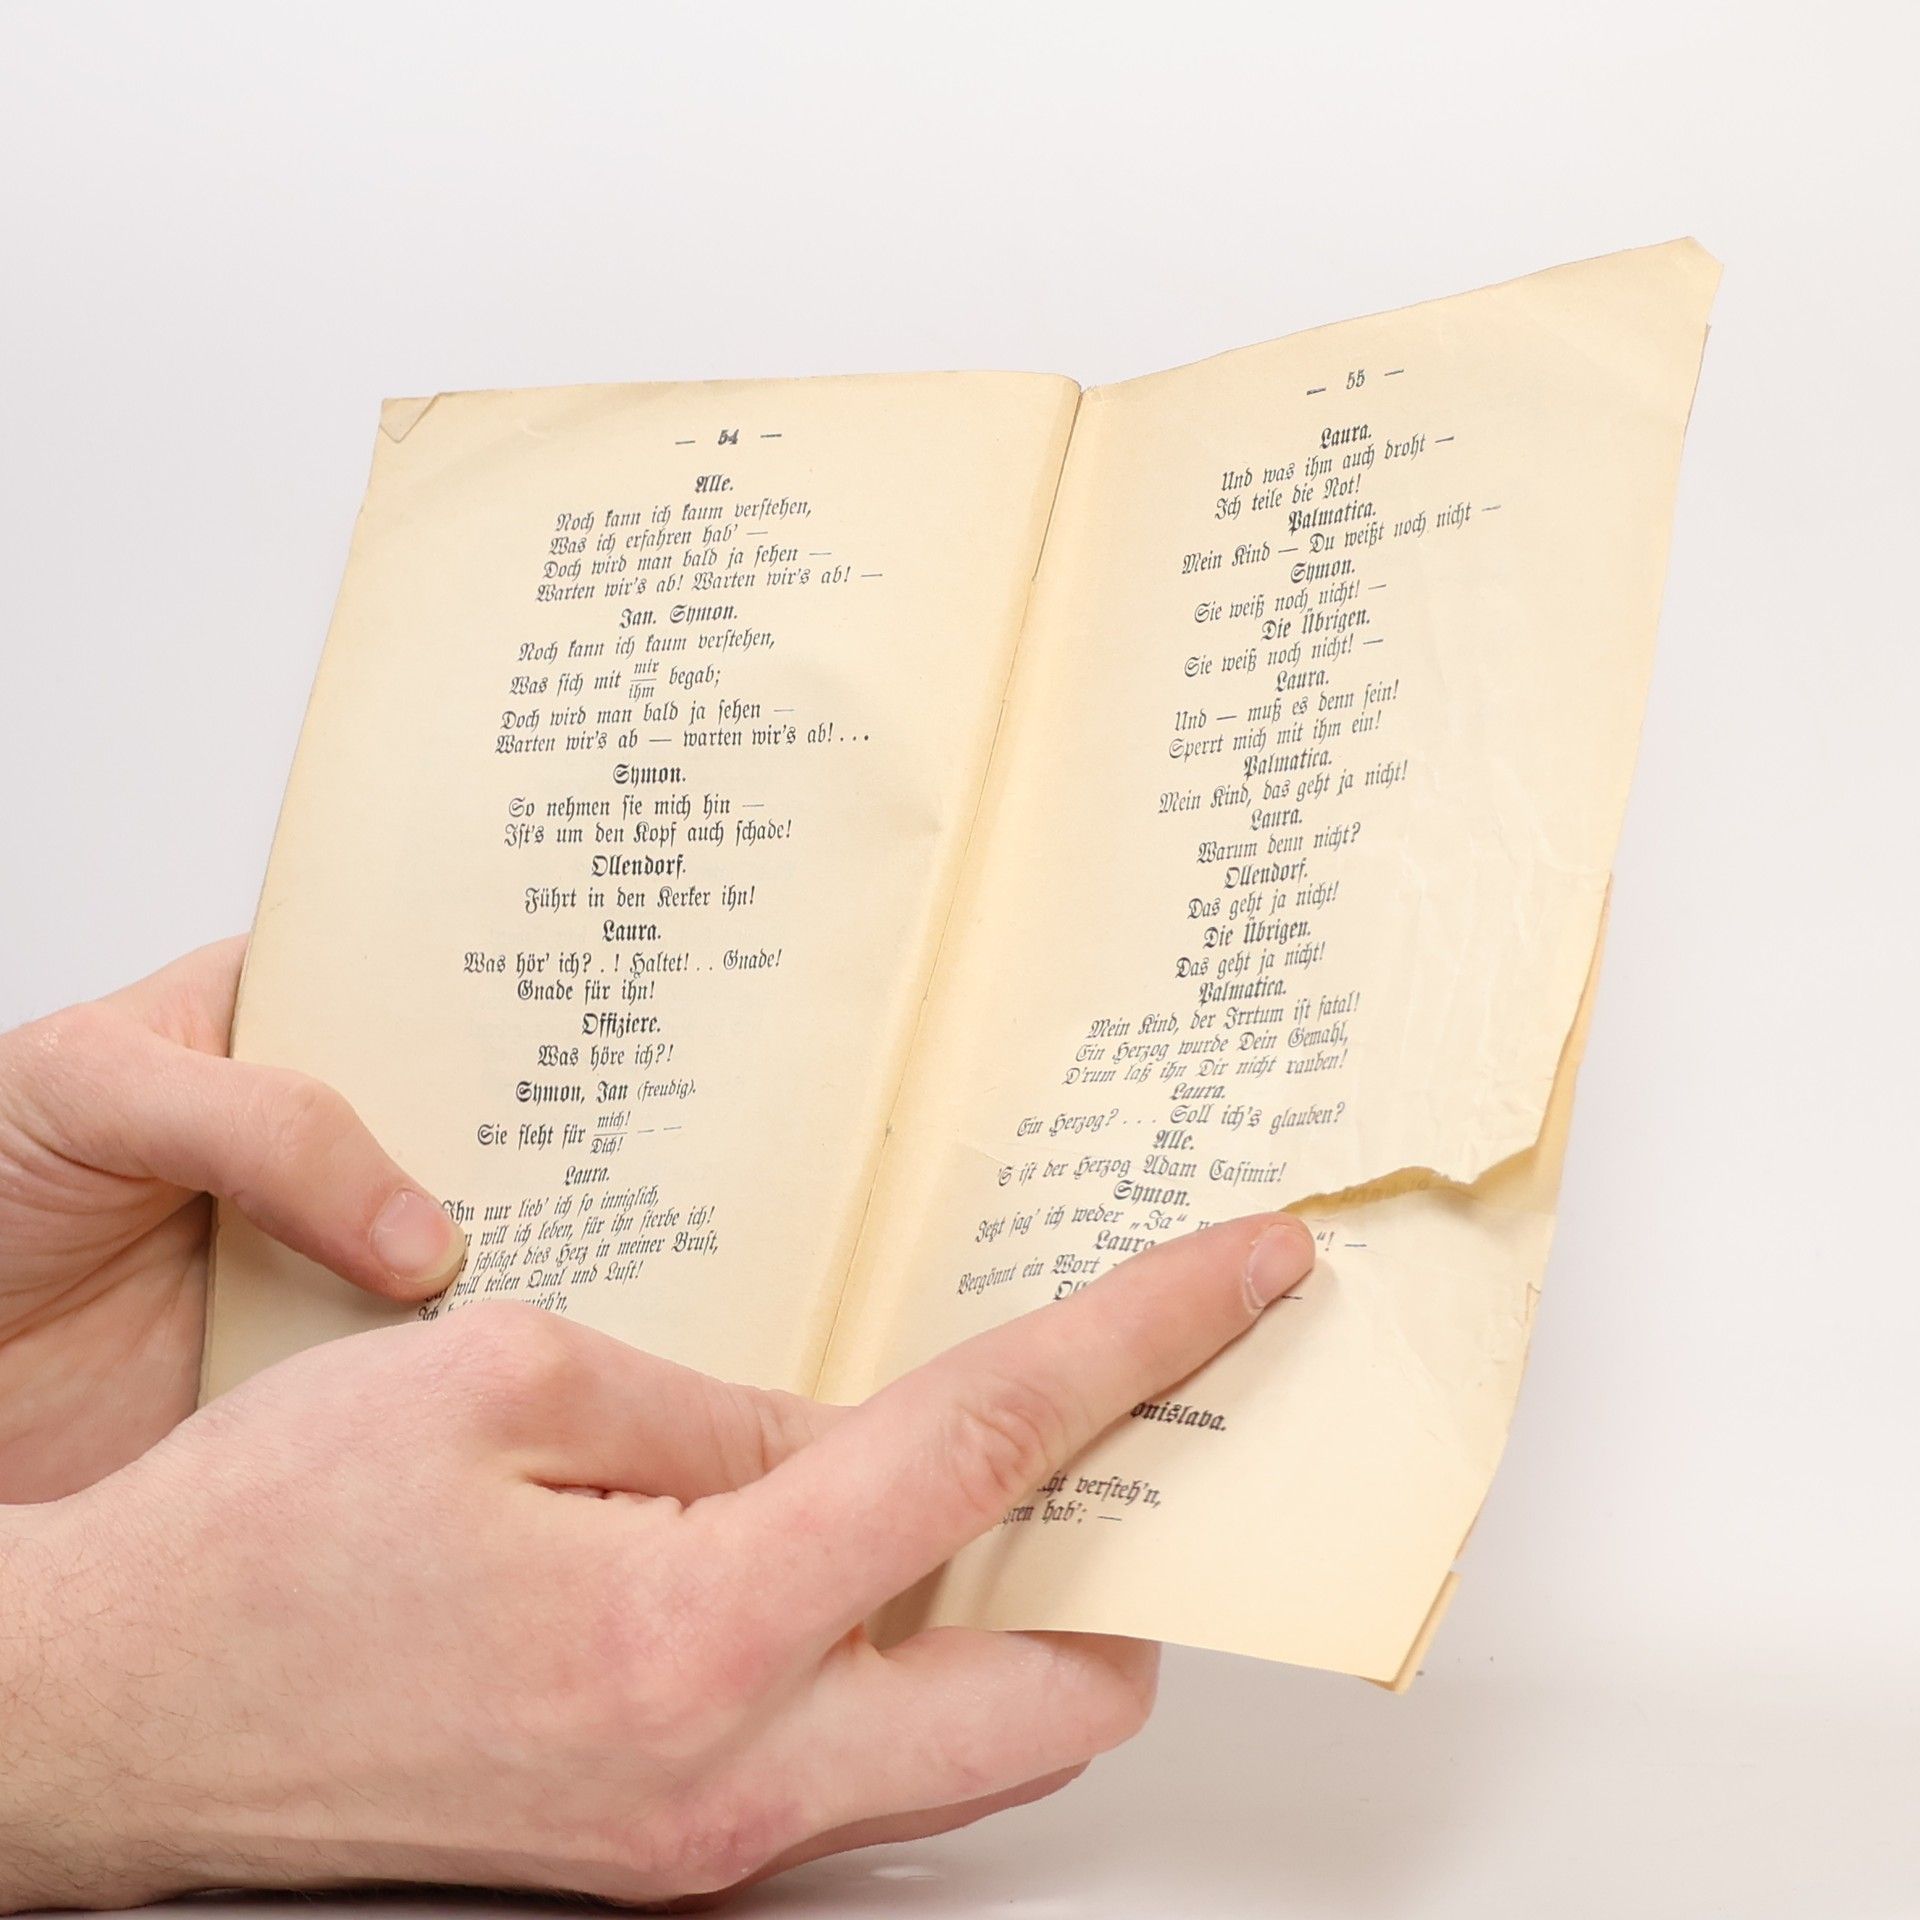 — 54 —
Alle.
Noch kann ich kaum verstehen,
Was ich erfahren hab' —
Doch wird man bald ja sehen —
Warten wir's ab! Warten wir's ab! —
Jan. Symon.
Noch kann ich kaum verstehen,
Was sich mit mir/ihm begab;
Doch wird man bald ja sehen —
Warten wir's ab — warten wir's ab! . . .
Symon.
So nehmen sie mich hin —
Ist's um den Kopf auch schade!
Ollendorf.
Führt in den Kerker ihn!
Laura.
Was hör' ich? . ! Haltet! . . Gnade!
Gnade für ihn!
Offiziere.
Was höre ich?!
Symon, Jan (freudig).
Sie fleht für mich!/Dich! — —
Laura.
Ihn nur lieb' ich so inniglich,
will ich leben, für ihn sterbe ich!
schlägt dies Herz in meiner Brust,
will teilen Qual und Lust!
— 55 —
Laura.
Und was ihm auch droht —
Ich teile die Not!
Palmatica.
Mein Kind — Du weißt noch nicht —
Symon.
Sie weiß noch nicht! —
Die Übrigen.
Sie weiß noch nicht! —
Laura.
Und — muß es denn sein!
Sperrt mich mit ihm ein!
Palmatica.
Mein Kind, das geht ja nicht!
Laura.
Warum denn nicht?
Ollendorf.
Das geht ja nicht!
Die Übrigen.
Das geht ja nicht!
Palmatica.
Mein Kind, der Irrtum ist fatal!
Ein Herzog wurde Dein Gemahl,
D'rum laß ihn Dir nicht rauben!
Laura.
Ein Herzog? . . . Soll ich's glauben?
Alle.
'S ist der Herzog Adam Casimir!
Symon.
Jetzt sag' ich weder „Ja“ “! —
Laura
Vergönnt ein Wort
onislava.
versteh'n,
hab': —